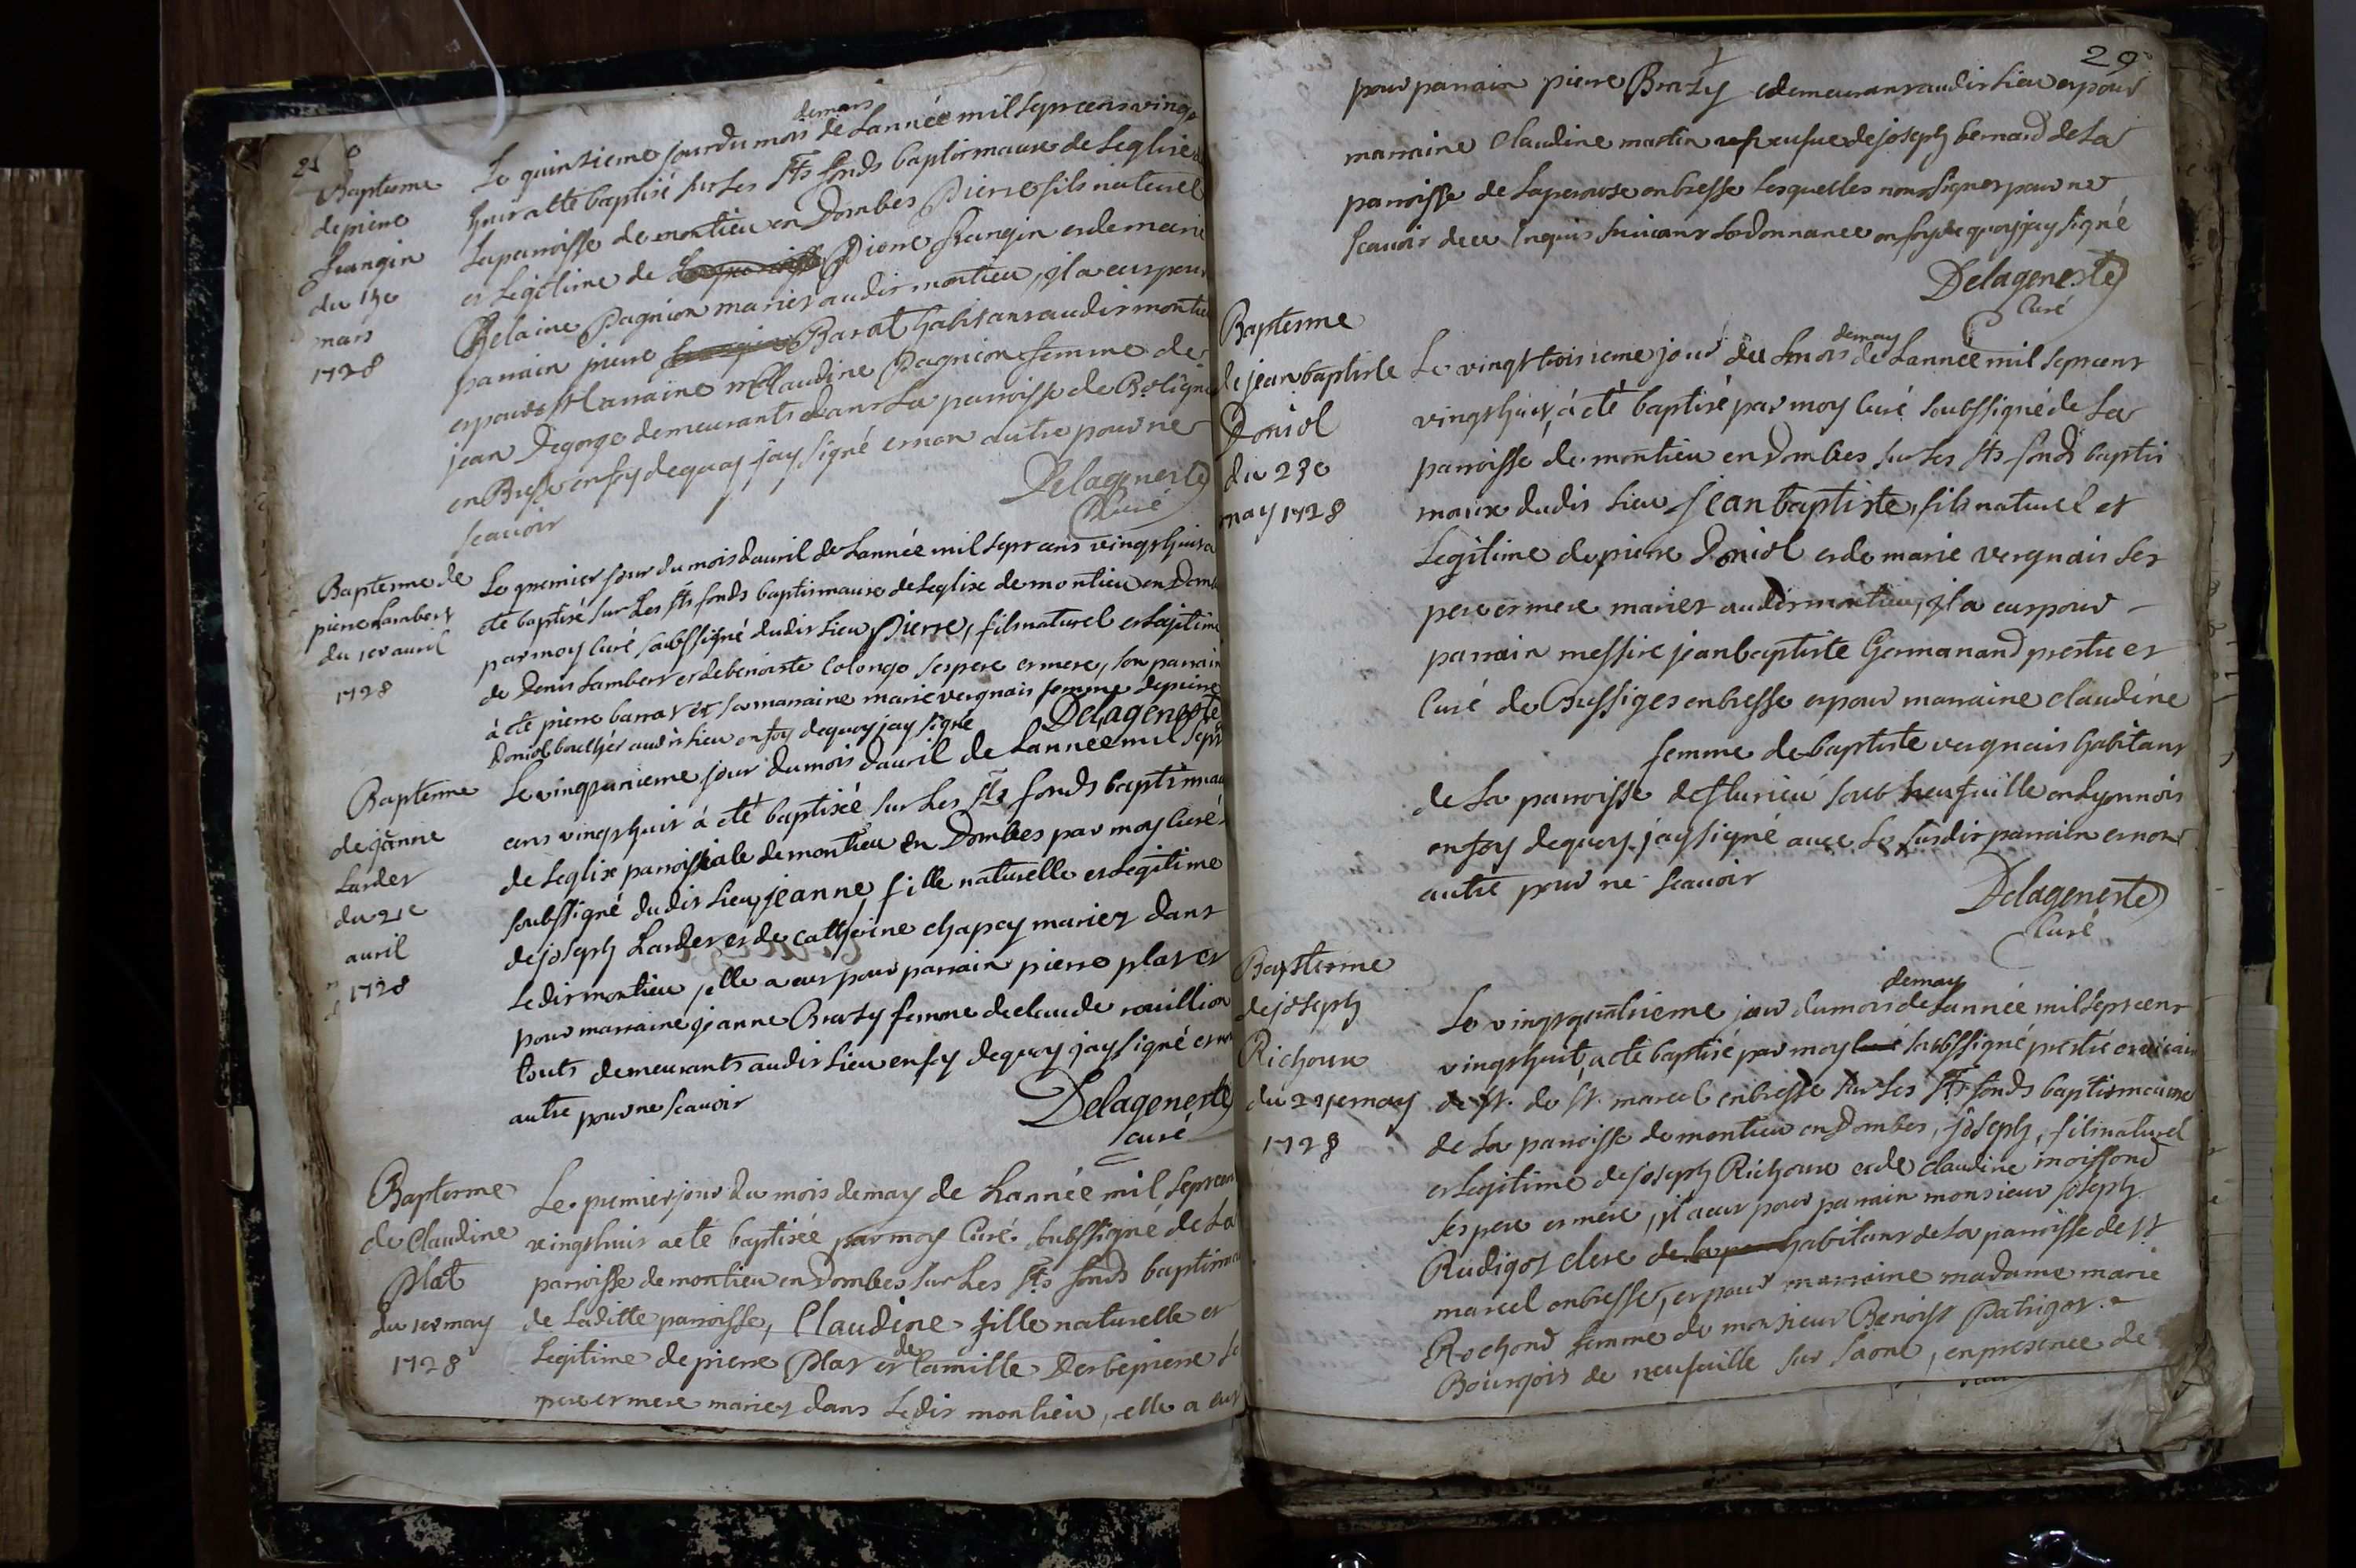 28
Baptesme
de pierre
frangin
du 15e
mars
1728
Le quinzieme jour du mois de mars de Lannée mil sept cens vingt
huit a êtê baptisé sur Les sts fonds baptismaux de Leglise de
La parroisse de montieu en Dombes Pierre fils naturel
et Legitime de Pierre frangin et demeine
Pagnion mariez audit montieu, jl a eut pour
parrain pierre Barat habitans audit montieu
et pour Marraine Claudine Pagnion femme de
jean Degorge demeurants dans La parroisse de
en Bresse en foy dequoy jay signé et non autre pour ne
scauoir
Delageneste
Curé
Baptesme de
pierre Lambert
du 1er auril
1728
Le premier jour du mois dauril de Lannée mil sept cens vingt huit a
été baptisé sur Les sts fonds baptismaux de Leglise de montieu en Dombes
par moy Curé soubssigné dudit Lieu Pierre, fils naturel et Legitime
de Denis Lambert et de benoiste Colonge ses pere et mere, son parrain
à été pierre barrat et sa marraine marie vergnais femme de pierre
Doniol boucher audit Lieu en foy dequoy jay signé Delageneste
Baptesme
de jeanne
Lardet
du 21e
auril
1728
Le vingt unieme jour du mois dauril de Lannee mil sept
cens vingt huit à été baptisée sur Les sts fonds baptismaux
de Leglise parroissiale de montieu en Dombes par moy Curé
soubssigné dudit Lieu, jeanne, fille naturelle et Legitime
de joseph Lardet et de catherine chapoy mariez dans
Ledit montieu, elle a eut pour parrain pierre plat et
pour marraine jeanne Brazy femme de claude rouillion
touts demeurants audit Lieu en foy dequoy jay signé et non
autre pour ne scauoir
Delageneste
curé
Baptesme
de Claudine
Plat
du 1er may
1728
Le premier jour du mois de may de Lannée mil sept cent
vingt huit a eté baptisée par moy Curé soubssigné de La
parroisse de montieu en Dombes sur Les sts fonds baptismaux
de Laditte parroisse, Claudine fille naturelle et
Legitime de pierre Plat et de Camille Derbepierre se
pere et mere mariez dans Ledit montieu, elle a eut
29
pour parrain pierre Brazy demeurant audit Lieu et pour
marraine Claudine martin veufue de joseph bernard de La
parroisse de Laperouse en bresse Lesquelles nont signer pour ne
scauoir de ce Enquis suiuant Lordonnance en foy de quoy jay signé
Delageneste
Curé
Baptesme
de jean baptiste
Doniol
du 23e
may 1728
Le vingt troisieme jour du mois de may de Lannée mil sept cent
vingt huit, à été baptisé par moy Curé soubssigné de La
parroisse de montieu en Dombes sur Les sts fonds baptis
maux dudit Lieu jean baptiste, fils naturel et
Legitime de pierre Doniol et de marie vergnais Ses
pere et mere mariez audit montieu, jl a eut pour
parrain messire jean baptiste Germanand prestre et
Curé de Bussiges en bresse et pour marraine claudine
femme de baptiste vergnais habitant
de La parroisse de flurieu soub neufuille en Lyonnois
en foy dequoy jay signé auec Le susdit parrain et non
autre pour ne scauoir
Delageneste
Curé
Baptesme
de joseph
Richoux
du 24e may
1728
Le vingt quatrieme jour du mois de may de Lannée mil sept cent
vingt huit, a eté baptisé par moy curé soubssigné prestre et vicair
de st. de st. marcel en bresse sur Les sts fonds baptismaux
de La parroisse de montieu en Dombes, joseph, fils naturel
et Legitime de joseph Richoux et de claudine moissond
ses pere et mere, jl a eut pour parrain monsieur joseph
Rudigoz clerc de la par habitant de La parroisse de st
marcel en bresse, et pour marraine madame marie
Rochond femme de monsieur Benoist Patrigot
Bourgois de neufuille sur saone, en presence de